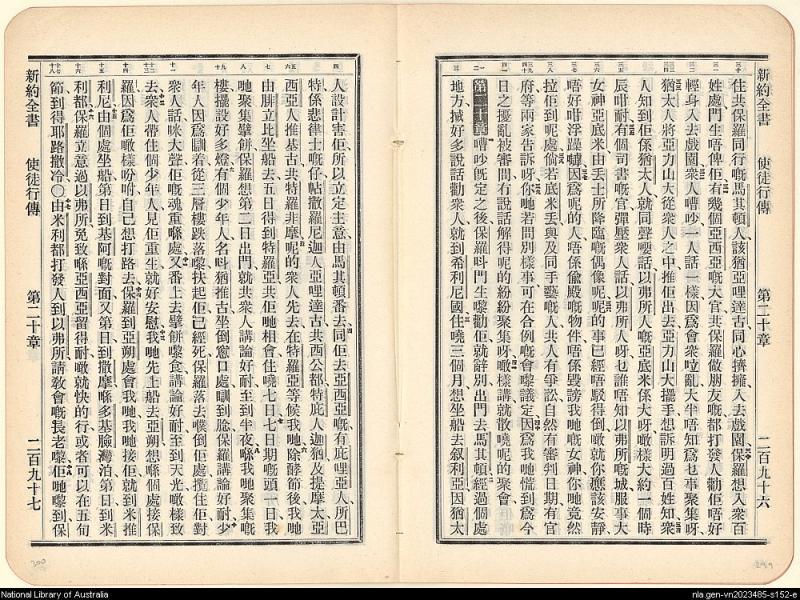 新約全書 使徒行傳 第二十章 二百九十六
住共保羅同行嘅馬其頓人該猶亞哩達古同心擠擁入去戲園保羅想入衆百
姓處門生唔俾佢有幾個亞西亞嘅大官共保羅做朋友嘅都打發人勸佢唔好
輕身入去戲園衆人嘈吵一人話一樣因爲會衆亂大半唔知爲乜事聚集呀
猶太人將亞力山大從衆人之中推佢出去亞力山大擺手想訴明過百姓知衆
人知到佢係猶太人就同聲話以弗所人嘅亞底米係大呀噉樣大約一個時
辰咁耐有個司書嘅官彈壓衆人話以弗所人呀乜誰唔知以弗所嘅城服事大
女神亞底米由丟士所降臨嘅偶像呢呢的事已經唔駁得倒噉就你應該安靜
唔好咁浮躁因爲呢的人唔係偷殿嘅物件唔係毀謗我哋嘅女神你哋竟然
拉佢到呢處倘若底米丟與及同手藝嘅人共人有爭訟自然有審判日期有官
府等兩家告訴呀你哋若問別樣事可在合例嘅會嚟議定因爲我哋慌到爲今
日之擾亂被審問冇說話解得呢的紛紛聚集呀噉樣講就散曉呢的衆會
第二十章 嘈吵既定之後保羅呌門生嚟勸佢就辭別出門去馬其頓經過個處
地方好多說話勸衆人就到希利尼國住曉三個月想坐船去叙利亞因猶太
人設計害佢所以立定主意由馬其頓番去同佢去亞西亞嘅有庇哩亞人所巴
特係悲律士嘅仔帖撒羅尼迦人亞哩達古共西公都特庇人迦猶及提摩太亞
西亞人推基古共特羅非摩呢的衆人先去在特羅亞等候我哋除酵節後我哋
由腓立比坐船去五日得到特羅亞共佢哋相會住七日七日期嘅頭一日我
哋聚集擘餅保羅想第二日出門就共衆人講論好耐至到半夜喺我哋聚集嘅
樓擺設好多燈有個少年人名呌猶推古坐倒窻口處瞓到腍保羅講論好耐少
年人因爲瞓着從三層樓跌落嚟扶起佢已經死保羅落去噗倒佢處攬住佢對
衆人話咪大聲佢嘅魂重喺處又番上去擘餅嚟食講論好耐至到天光噉樣致
去衆人帶住個少年人見佢重生就好安慰我哋先上船去亞朔想喺個處接保
羅因爲佢噉樣吩咐自己想打路去保羅到亞朔處會我哋我哋接佢就到米推
利尼由個處坐船第日到基阿嘅對面又第日到撒摩喺多基臉灣泊第日到米
利都保羅立意過以弗所免致喺亞西亞留得耐噉就快的行或者可以在五旬
節到得耶路撒冷〇由米利都打發人到以弗所請敎會嘅長老嚟佢哋嚟到保
新約全書 使徒行傳 第二十章 二百九十七
National Library of Australia
nla.gen-vn2023485-s152-e